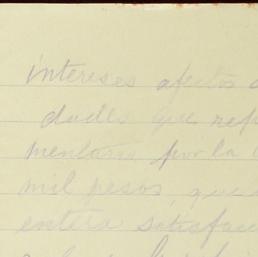 intereses afectos
dades que rep
mentaria por la
mil pesos, que
entera satisfac